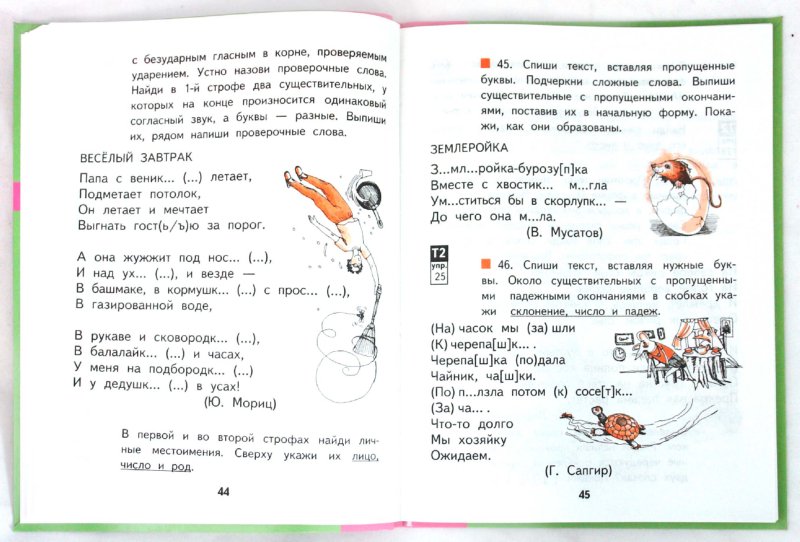 с безударным гласным в корне, проверяемым
ударением. Устно назови проверочные слова.
Найди в 1-й строфе два существительных, у
которых на конце произносится одинаковый
согласный звук, а буквы — разные. Выпиши
их, рядом напиши проверочные слова.
ВЕСЁЛЫЙ ЗАВТРАК
Папа с веник... (...) летает,
Подметает потолок,
Он летает и мечтает
Выгнать гост(ь/ъ)ю за порог.
А она жужжит под нос... (...),
И над ух... (...), и везде —
В башмаке, в кормушк... (...) с прос... (...),
В газированной воде,
В рукаве и сковородк... (...),
В балалайк... (...) и часах,
У меня на подбородк... (...)
И у дедушк... (...) в усах!
(Ю. Мориц)
В первой и во второй строфах найди лич-
ные местоимения. Сверху укажи их лицо,
число и род.
44
45. Спиши текст, вставляя пропущенные
буквы. Подчеркни сложные слова. Выпиши
существительные с пропущенными окончани-
ями, поставив их в начальную форму. Пока-
жи, как они образованы.
ЗЕМЛЕРОЙКА
З...мл...ройка-бурозу[п]ка
Вместе с хвостик... м...гла
Ум...ститься бы в скорлупк... —
До чего она м...ла.
(В. Мусатов)
Т2
упр.
25
46. Спиши текст, вставляя нужные бук-
вы. Около существительных с пропущенны-
ми падежными окончаниями в скобках ука-
жи склонение, число и падеж.
(На) часок мы (за) шли
(К) черепа[ш]к... .
Черепа[ш]ка (по)дала
Чайник, ча[ш]ки.
(По) п...лзла потом (к) сосе[т]к...
(За) ча... .
Что-то долго
Мы хозяйку
Ожидаем.
(Г. Сапгир)
45